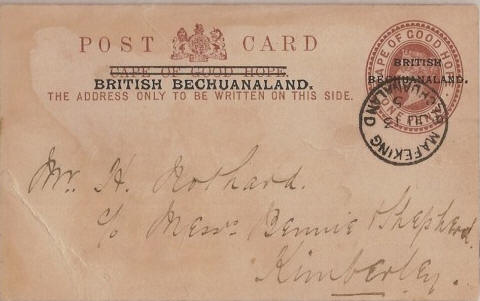 POST CARD
CAPE OF GOOD HOPE.
BRITISH BECHUANALAND.
THE ADDRESS ONLY TO BE WRITTEN ON THIS SIDE.
CAPE OF GOOD HOPE
BRITISH
BECHUANALAND.
ONE PENNY
MAFEKING
BECHUANALAND
Mr. H. Nothard.
c/o Messrs Bennie & Shepherd.
Kimberley.